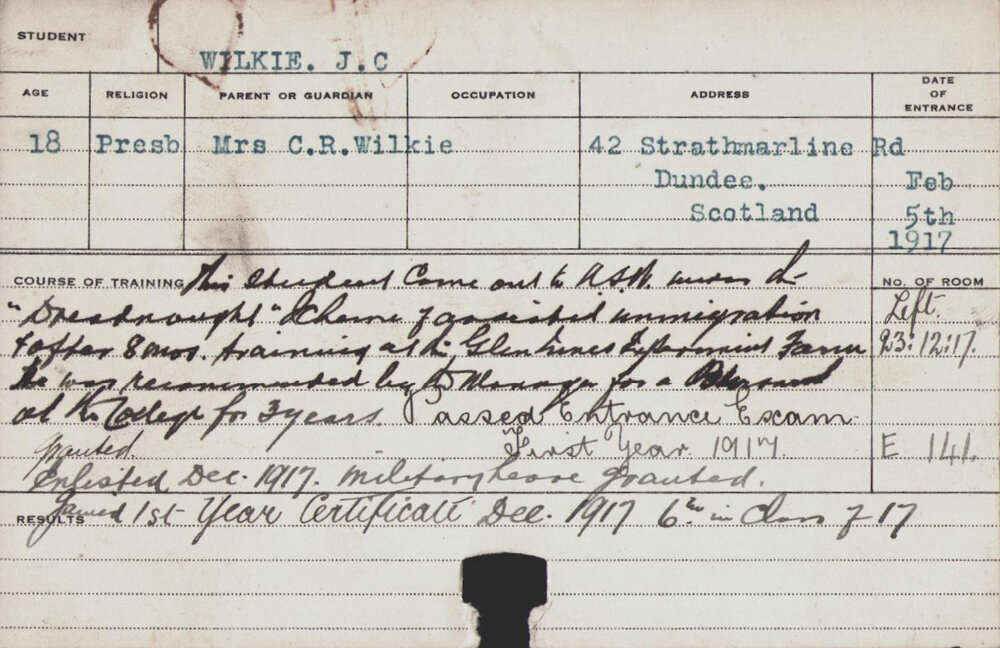 STUDENT
WILKIE. J.C
AGE RELIGION PARENT OR GUARDIAN OCCUPATION ADDRESS DATE OF ENTRANCE
18 Presb Mrs C.R.Wilkie 42 Strathmarline Rd
Dundee. Feb
Scotland 5th
1917
COURSE OF TRAINING This student came out to N.S.W. under the NO. OF ROOM
"Dreadnought" Scheme of assisted immigration Left
& after 8 mos. training at the Glen Innes Experiment Farm 23:12:17.
he was recommended by the Manager for a
at the College for 3 years. Passed Entrance Exam
granted. First Year 1917 E 141.
Enlisted Dec. 1917. Military leave granted.
RESULTS Gained 1st Year Certificate Dec. 1917 6th in Class of 17